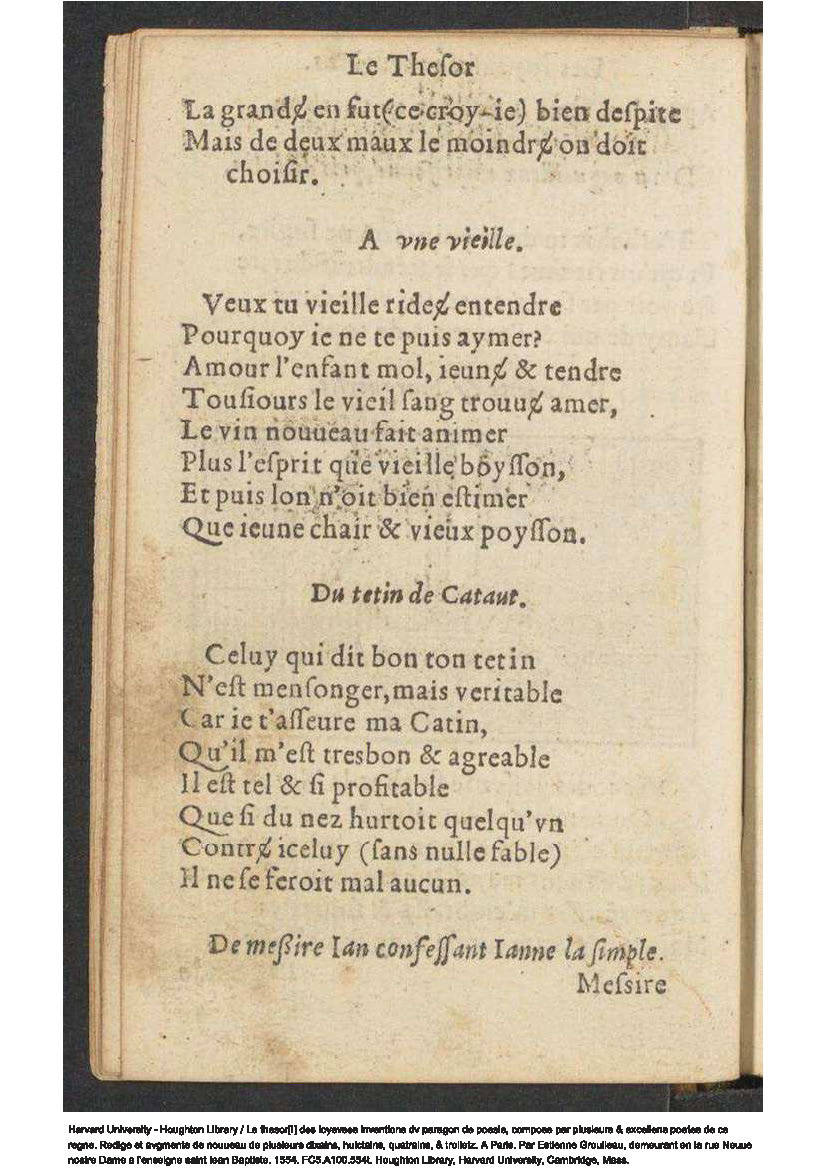 Le Theſor
La grandɇ en fut (ce croy-ie) bien deſpite
Mais de deux maux le moindrɇ on doit
choiſir.
A vne vieille.
Veux tu vieille rideɇ entendre
Pourquoy ie ne te puis aymer?
Amour l'enfant mol, ieunɇ & tendre
Touſiours le vieil ſang trouuɇ amer,
Le vin nouueau fait animer
Plus l'eſprit que vieille boyſſon,
Et puis lon n'oit bien eſtimer
Que ieune chair & vieux poyſſon.
Du tetin de Cataut.
Celuy qui dit bon ton tetin
N'eſt menſonger, mais veritable
Car ie t'aſſeure ma Catin,
Qu'il m'eſt tresbon & agreable
Il eſt tel & ſi profitable
Que ſi du nez hurtoit quelqu'vn
Contrɇ iceluy (ſans nulle fable)
Il ne ſe feroit mal aucun.
De meßire Ian confeſſant Ianne la ſimple.
Meſsire
Harvard University - Houghton Library / Le thesor[!] des ioyevses inventions dv paragon de poesie, compose par plusieurs & excellens poetes de ce
regne. Redige et avgmente de nouueau de plusieurs dixains, huictains, quatrains, & trioletz. A Paris. Par Estienne Groulleau, demeurant en la rue Neuue
nostre Dame a l'enseigne saint Iean Baptiste. 1554. FC5.A100.554t. Houghton Library, Harvard University, Cambridge, Mass.